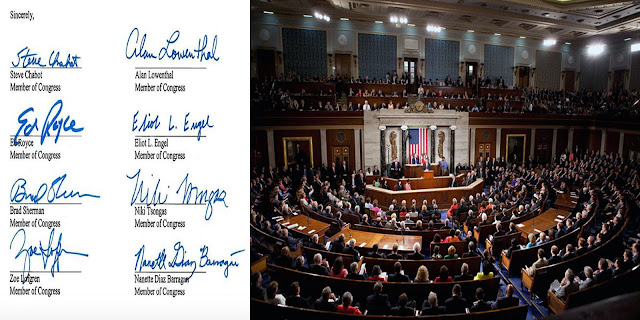 Sincerely,
Steve Chabot
Alan Lowenthal
Steve Chabot
Alan Lowenthal
Member of Congress
Member of Congress
Ed Royce
Eliot L. Engel
Ed Royce
Eliot L. Engel
Member of Congress
Member of Congress
Brad Sherman
Niki Tsongas
Brad Sherman
Niki Tsongas
Member of Congress
Member of Congress
Zoe Lofgren
Nanette Diaz Barragan
Zoe Lofgren
Nanette Diaz Barragan
Member of Congress
Member of Congress